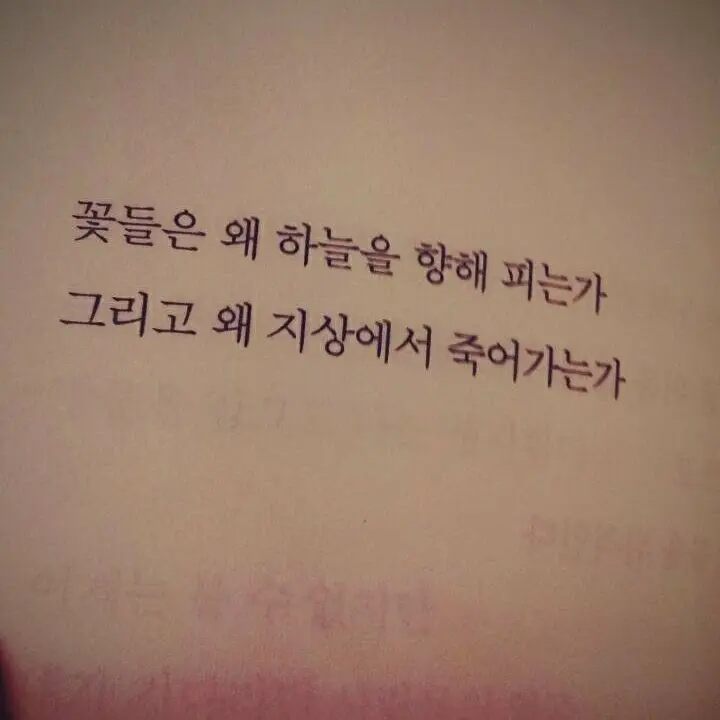 꽃들은 왜 하늘을 향해 피는가
그리고 왜 지상에서 죽어가는가